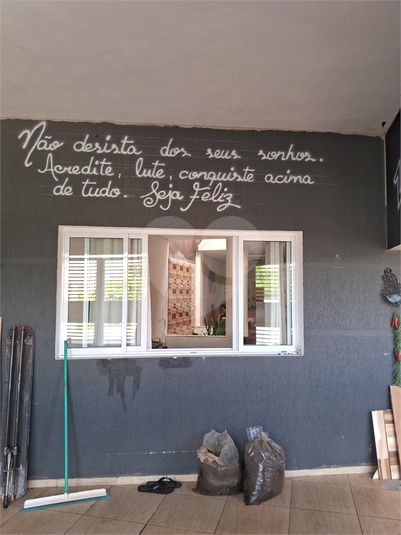 Não desista dos seus sonhos.
Acredite, lute, conquiste acima
de tudo. Seja Feliz